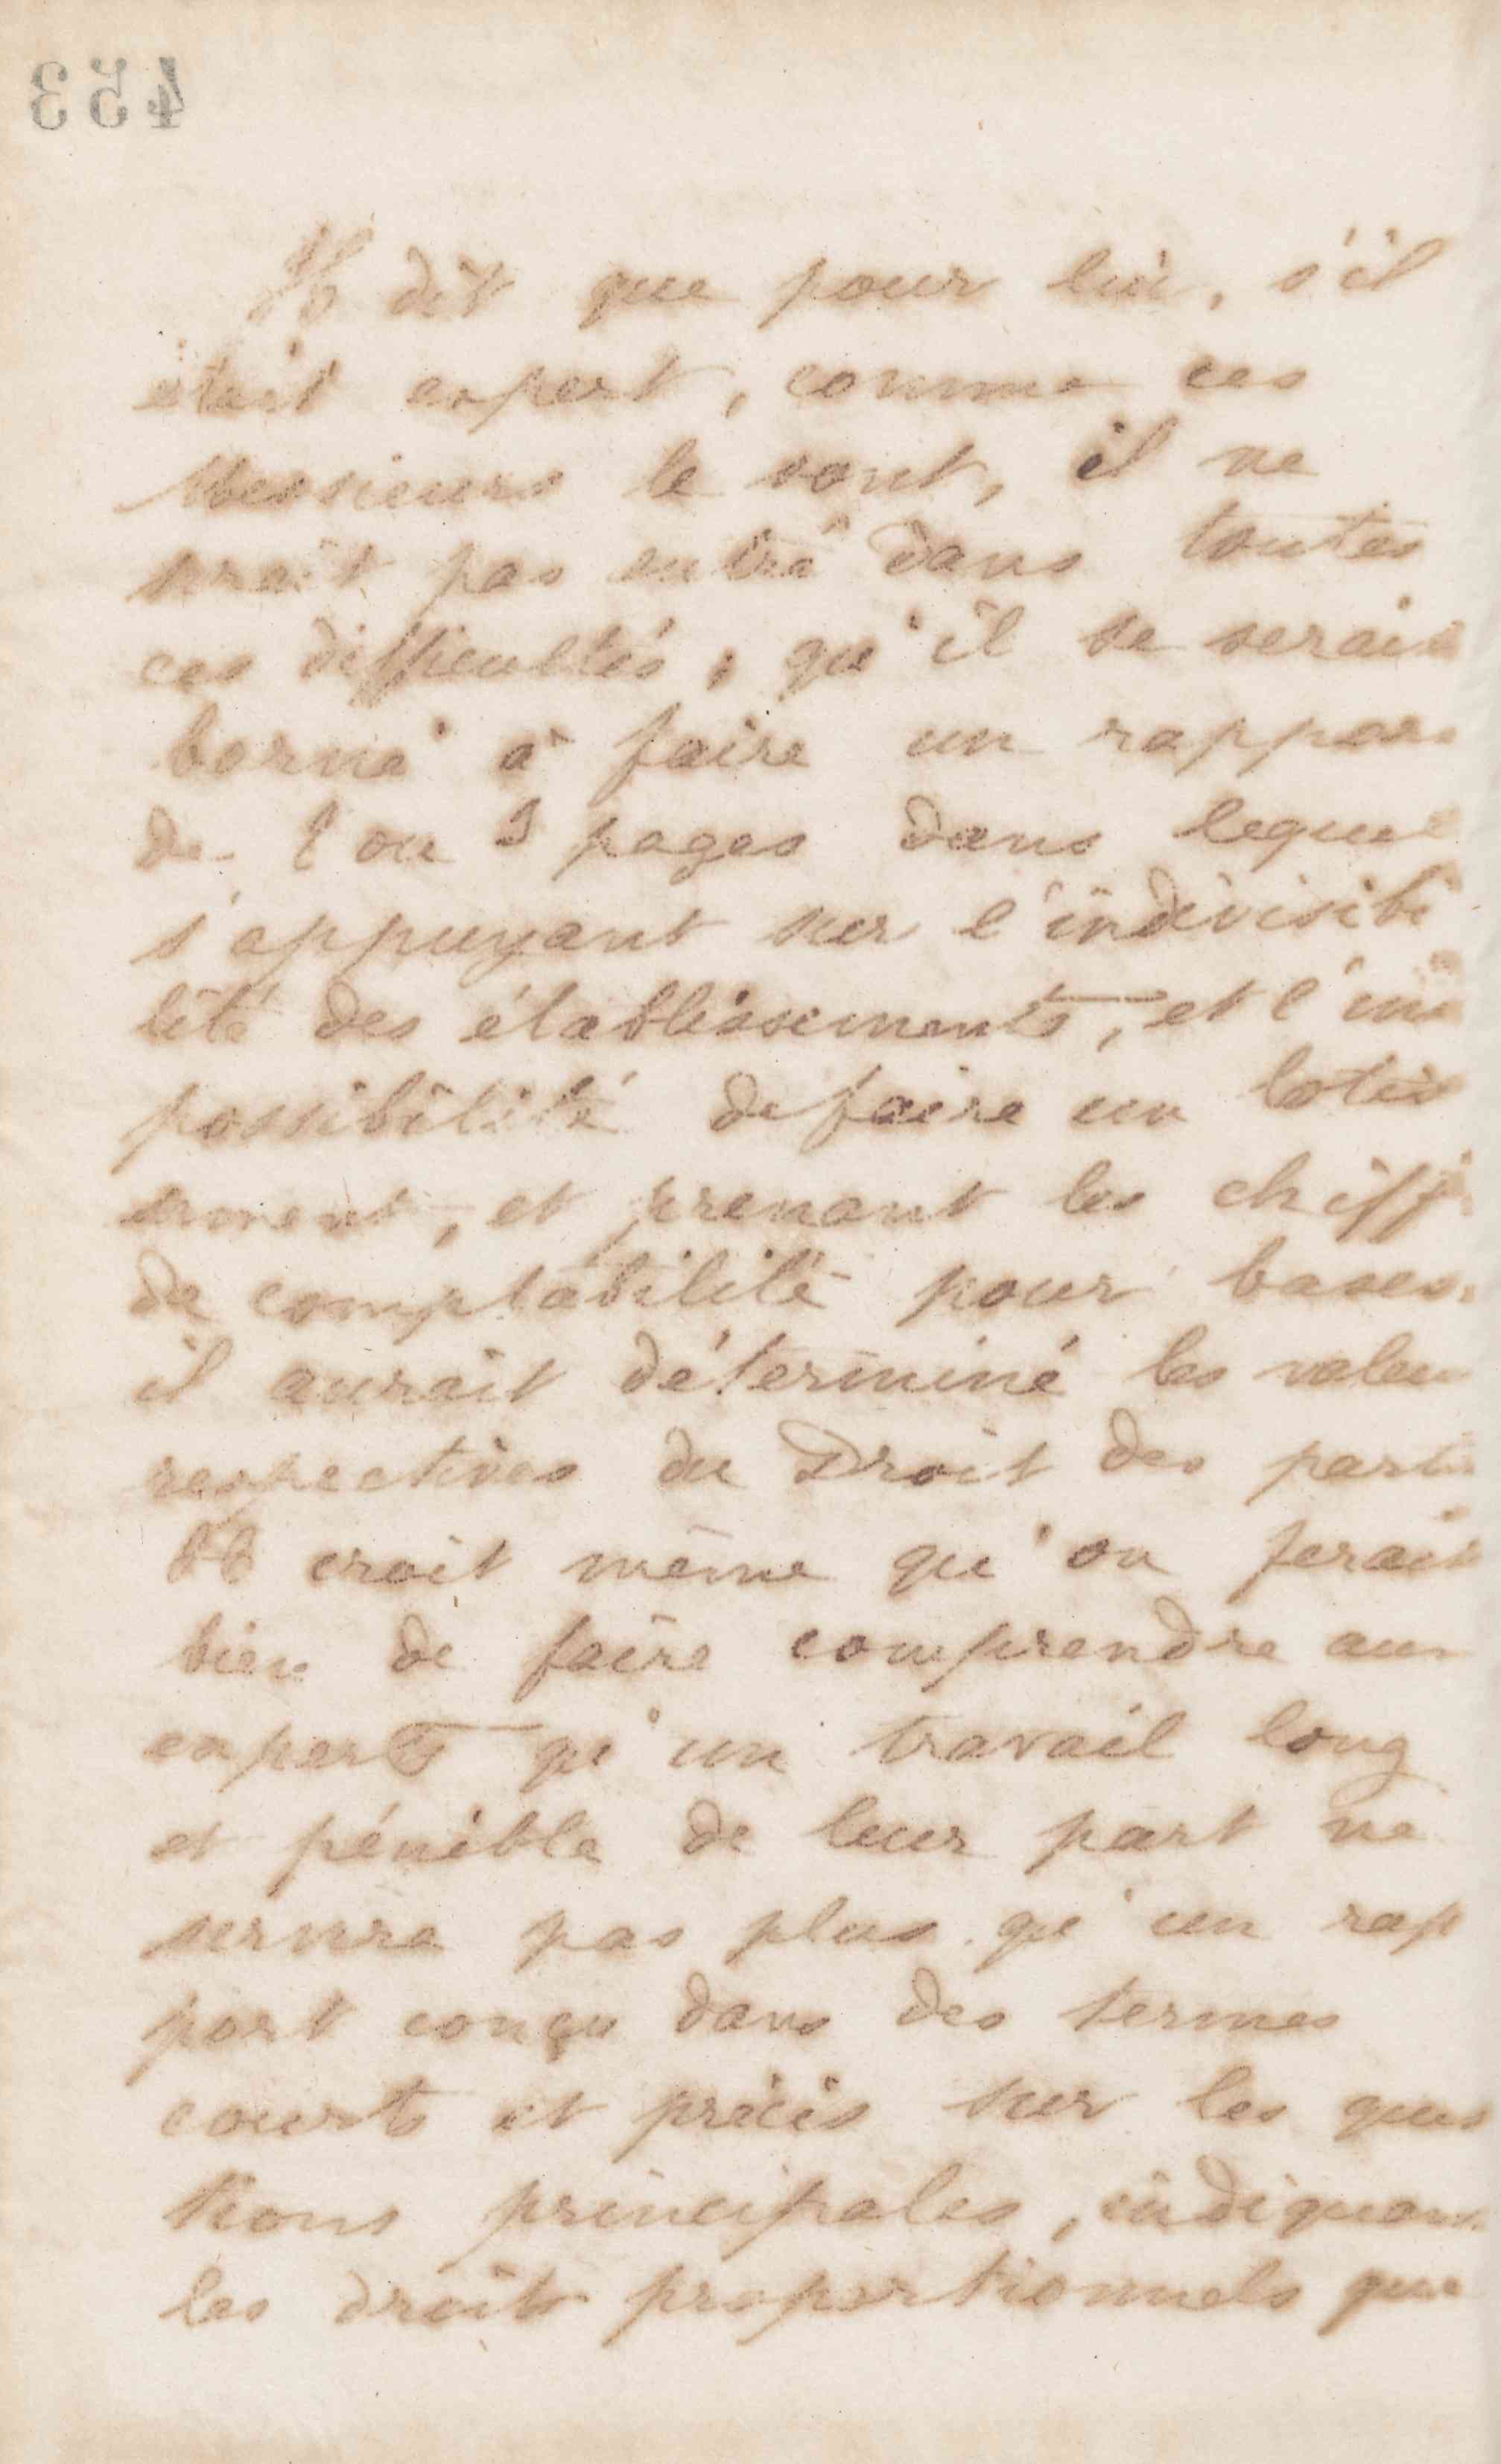 453
Il dit que pour lui, s'il
était expert, comme ces
Messieurs le sont, il ne
serait pas entré dans toutes
ces difficultés, qu'il se serait
borné à faire un rappor
de 2 ou 3 pages dans lequel
s'appuyant sur l'indivisibi
lité des établissements, et l'im
possibilité de faire un lotis
sement, et prenant les chiff
de comptabilité pour bases,
il aurait déterminé les valeu
respectives du Droit des parti
Il croit même qu'on ferait
bien de faire comprendre aux
experts qu'un travail long
et pénible de leur part ne
servira pas plus qu'un rap
port conçu dans des termes
courts et précis sur les ques
tions principales, indiquant
les droits proportionnels que